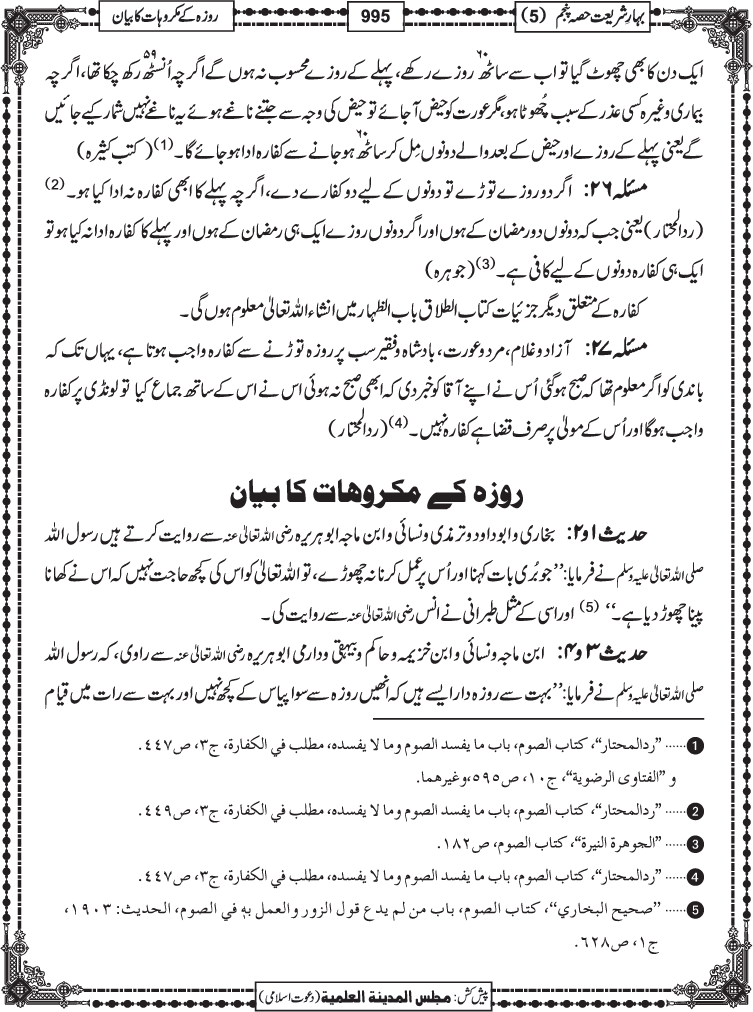 بہارِ شریعت حصہ پنجم (5)
995
روزہ کے مکروہات کا بیان
ایک دن کا بھی چھوٹ گیا تو اب سے ساٹھ ۶۰ روزے رکھے، پہلے کے روزے محسوب نہ ہوں گے اگرچہ اُنسٹھ ۵۹ رکھ چکا تھا، اگرچہ
بیماری وغیرہ کسی عذر کے سبب چُھوٹا ہو، مگر عورت کو حیض آجائے تو حیض کی وجہ سے جتنے ناغے ہوئے یہ ناغے نہیں شمار کیے جائیں
گے یعنی پہلے کے روزے اور حیض کے بعد والے دونوں مِل کر ساٹھ ۶۰ ہوجانے سے کفارہ ادا ہوجائے گا۔ (1) (کتب کثیرہ)
مسئلہ ۲۶: اگر دو روزے توڑے تو دونوں کے لیے دو کفارے دے، اگرچہ پہلے کا ابھی کفارہ نہ ادا کیا ہو۔ (2)
(ردالمحتار) یعنی جب کہ دونوں دو رمضان کے ہوں اور اگر دونوں روزے ایک ہی رمضان کے ہوں اور پہلے کا کفارہ ادا نہ کیا ہو تو
ایک ہی کفارہ دونوں کے لیے کافی ہے۔ (3) (جوہرہ)
کفارہ کے متعلق دیگر جزئیات کتاب الطلاق باب الظہار میں انشاء اللہ تعالیٰ معلوم ہوں گی۔
مسئلہ ۲۷: آزاد و غلام، مرد و عورت، بادشاہ و فقیر سب پر روزہ توڑنے سے کفارہ واجب ہوتا ہے، یہاں تک کہ
باندی کو اگر معلوم تھا کہ صبح ہوگئی اُس نے اپنے آقا کو خبر دی کہ ابھی صبح نہ ہوئی اس نے اس کے ساتھ جماع کیا تو لونڈی پر کفارہ
واجب ہوگا اور اُس کے مولیٰ پر صرف قضا ہے کفارہ نہیں۔ (4) (ردالمحتار)
روزہ کے مکروہات کا بیان
حدیث ۱ و ۲: بخاری و ابوداود و ترمذی و نسائی و ابن ماجہ ابوہریرہ رضی اللہ تعالیٰ عنہ سے روایت کرتے ہیں رسول اللہ
صلی اللہ تعالیٰ علیہ وسلم نے فرمایا: ’’جو بُری بات کہنا اور اُس پر عمل کرنا نہ چھوڑے، تو اللہ تعالیٰ کو اس کی کچھ حاجت نہیں کہ اس نے کھانا
پینا چھوڑ دیا ہے۔‘‘ (5) اور اسی کے مثل طبرانی نے انس رضی اللہ تعالیٰ عنہ سے روایت کی۔
حدیث ۳ و ۴: ابن ماجہ و نسائی و ابن خزیمہ و حاکم و بیہقی و دارمی ابوہریرہ رضی اللہ تعالیٰ عنہ سے راوی، کہ رسول اللہ
صلی اللہ تعالیٰ علیہ وسلم نے فرمایا: ’’بہت سے روزہ دار ایسے ہیں کہ انھیں روزہ سے سوا پیاس کے کچھ نہیں اور بہت سے رات میں قیام
1 ...... ”ردالمحتار“، کتاب الصوم، باب ما يفسد الصوم وما لا يفسده، مطلب في الكفارة، ج٣، ص٤٤٧.
و ”الفتاوى الرضوية“، ج١٠، ص٥٩٥،وغيرهما.
2 ...... ”ردالمحتار“، کتاب الصوم، باب ما يفسد الصوم وما لا يفسده، مطلب في الكفارة، ج٣، ص٤٤٩.
3 ...... ”الجوهرة النيرة“، كتاب الصوم، ص١٨٢.
4 ...... ”ردالمحتار“، کتاب الصوم، باب ما يفسد الصوم وما لا يفسده، مطلب في الكفارة، ج٣، ص٤٤٧.
5 ...... ”صحيح البخاري“، كتاب الصوم، باب من لم يدع قول الزور والعمل به في الصوم، الحديث: ١٩٠٣،
ج١، ص٦٢٨.
پیش کش: مجلس المدینة العلمیة (دعوت اسلامی)